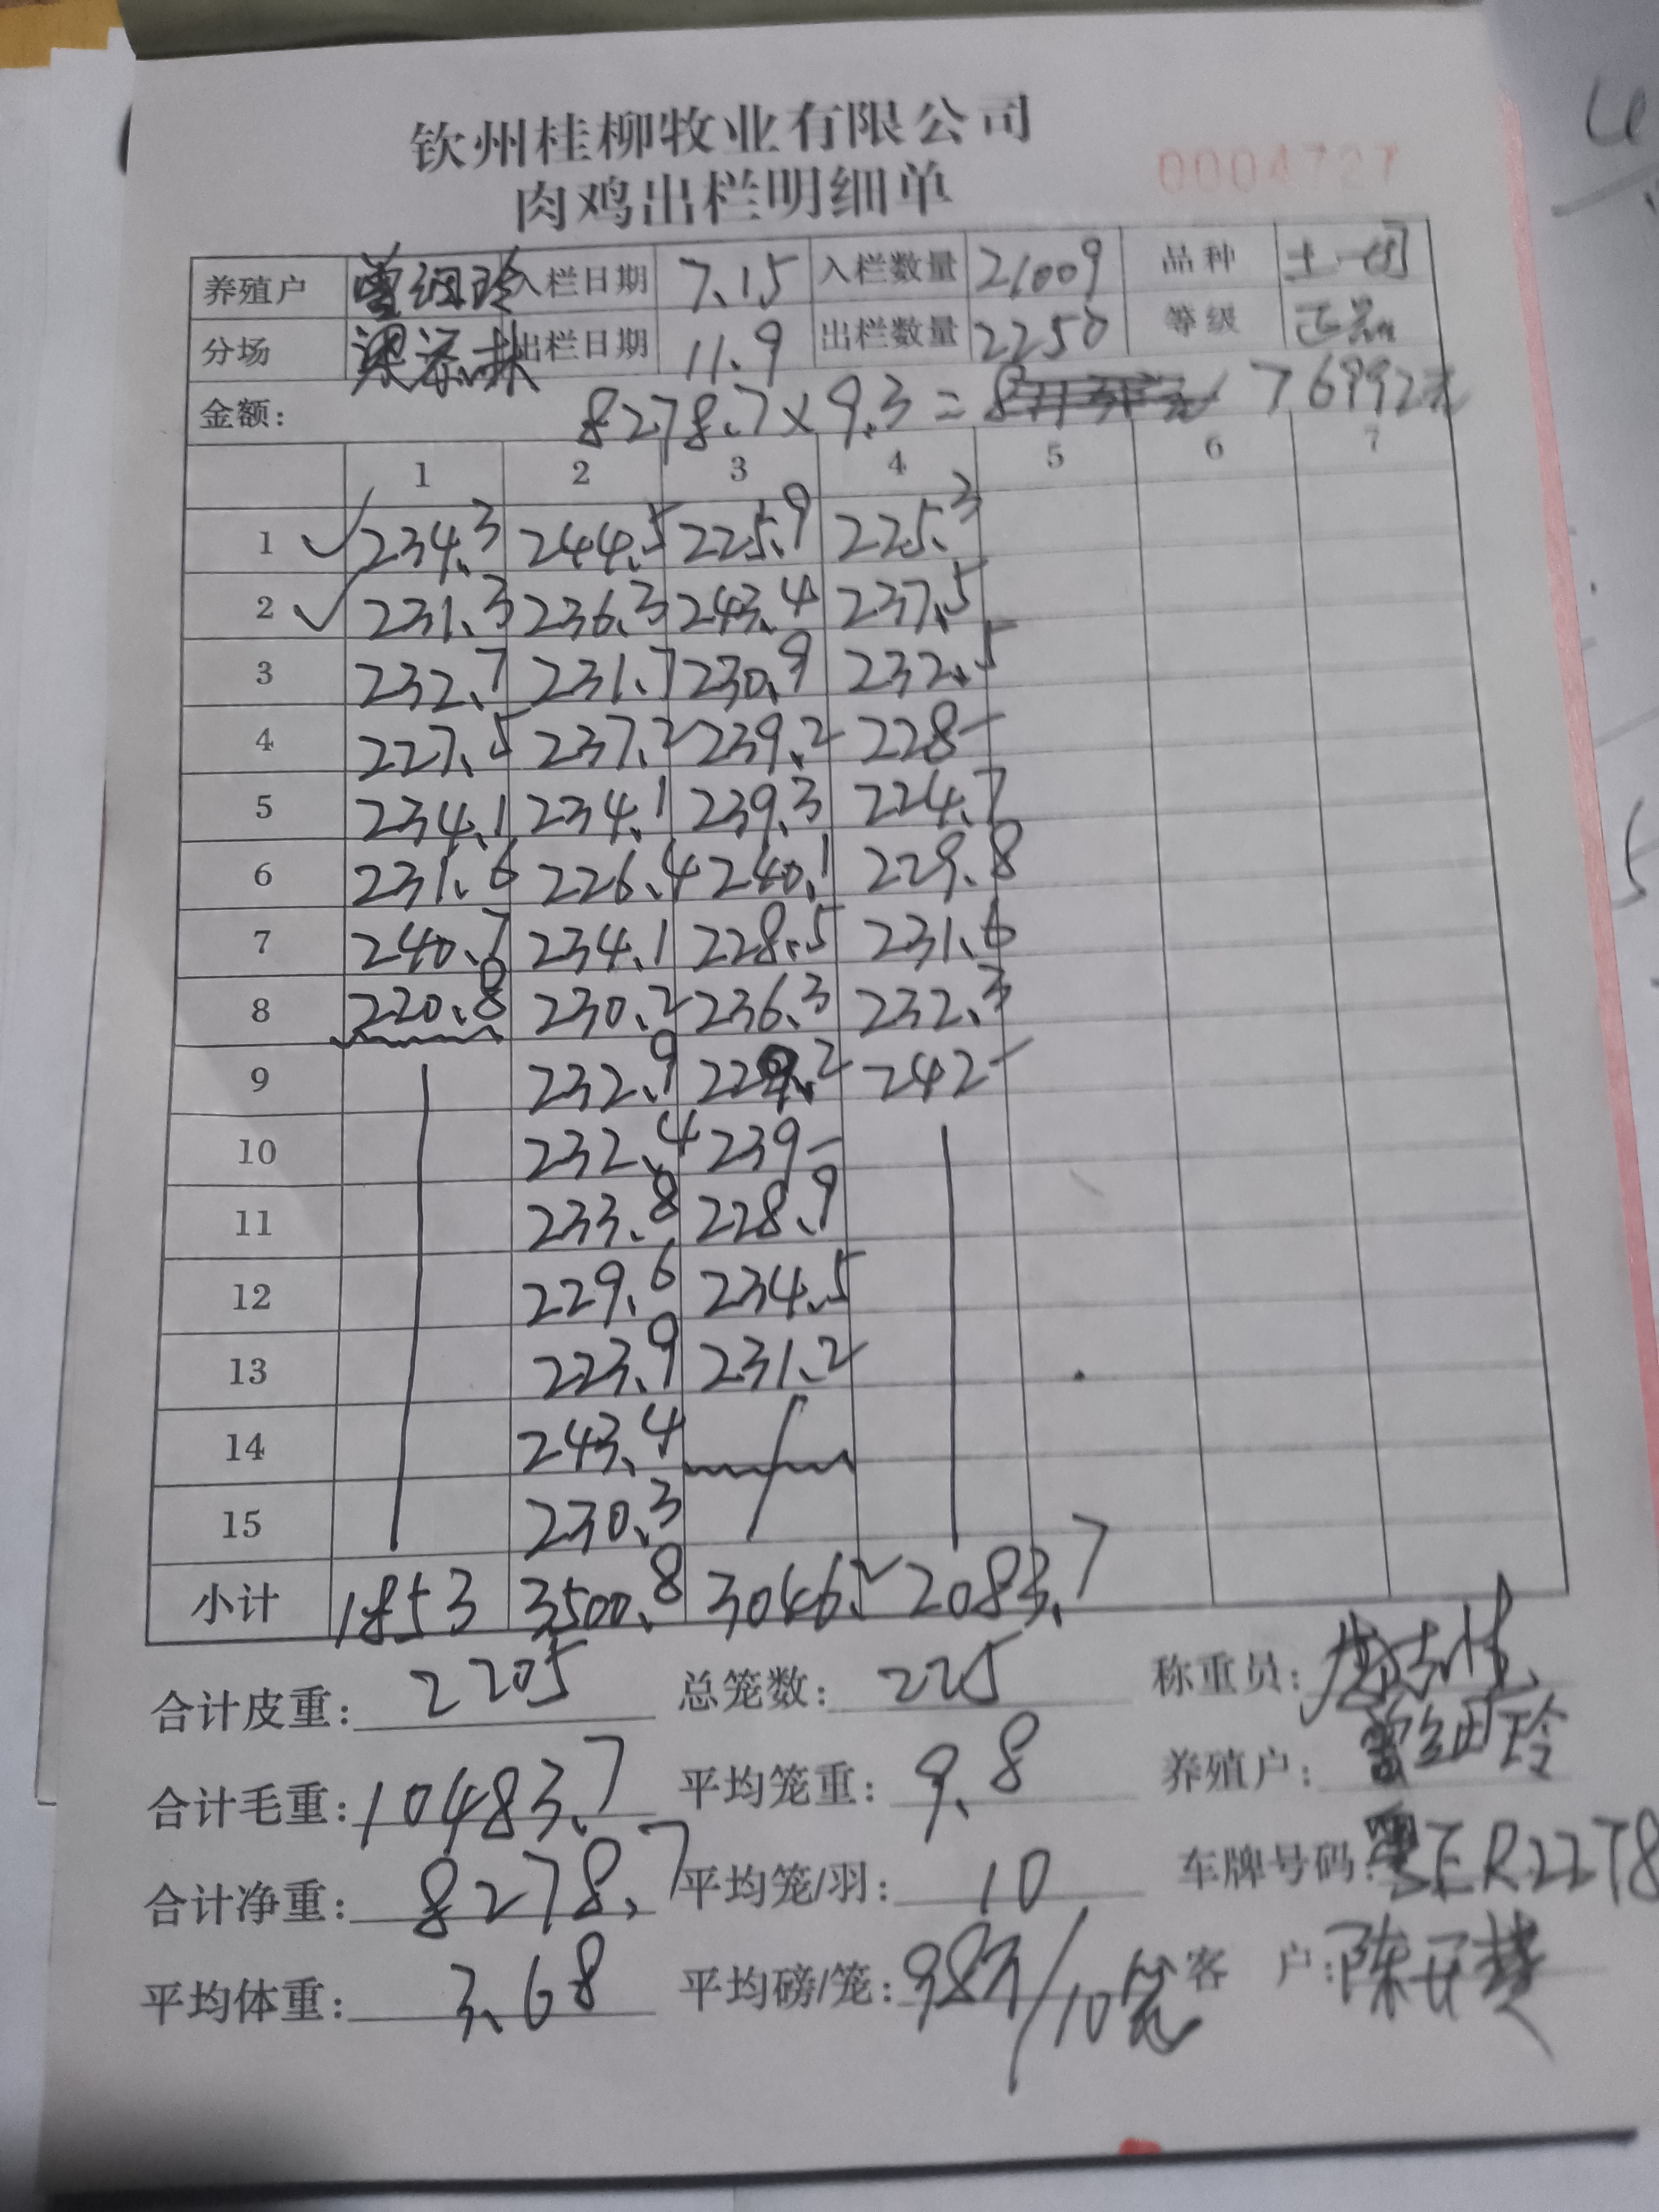 钦州桂柳牧业有限公司
肉鸡出栏明细单
0004727
养殖户 曾细玲 入栏日期 7.15 入栏数量 21009 品种 土一
分场 梁添林 出栏日期 11.9 出栏数量 2250 等级 正品
金额: 8278.7×9.3= 76992元
1 2 3 4 5 6 7
1 234.3 244.5 225.9 225.3
2 231.3 236.3 243.4 237.5
3 232.7 231.7 230.9 232.5
4 227.5 237.2 239.2 228-
5 234.1 234.1 239.3 224.7
6 231.6 226.4 240.1 229.8
7 240.7 234.1 228.5 231.6
8 220.8 230.2 236.3 232.3
9 232.9 229.2 242-
10 232.4 239-
11 233.8 228.9
12 229.6 234.5
13 223.9 231.2
14 243.4
15 230.3
小计 1853 3500.8 3046.2 2083.7
合计皮重: 2205 总笼数: 225 称重员:
合计毛重: 10483.7 平均笼重: 9.8 养殖户: 曾细玲
合计净重: 8278.7 平均笼/羽: 10 车牌号码: 粤ER22T8
平均体重: 3.68 平均磅/笼: 98斤/10笼 客 户: 陈开楚